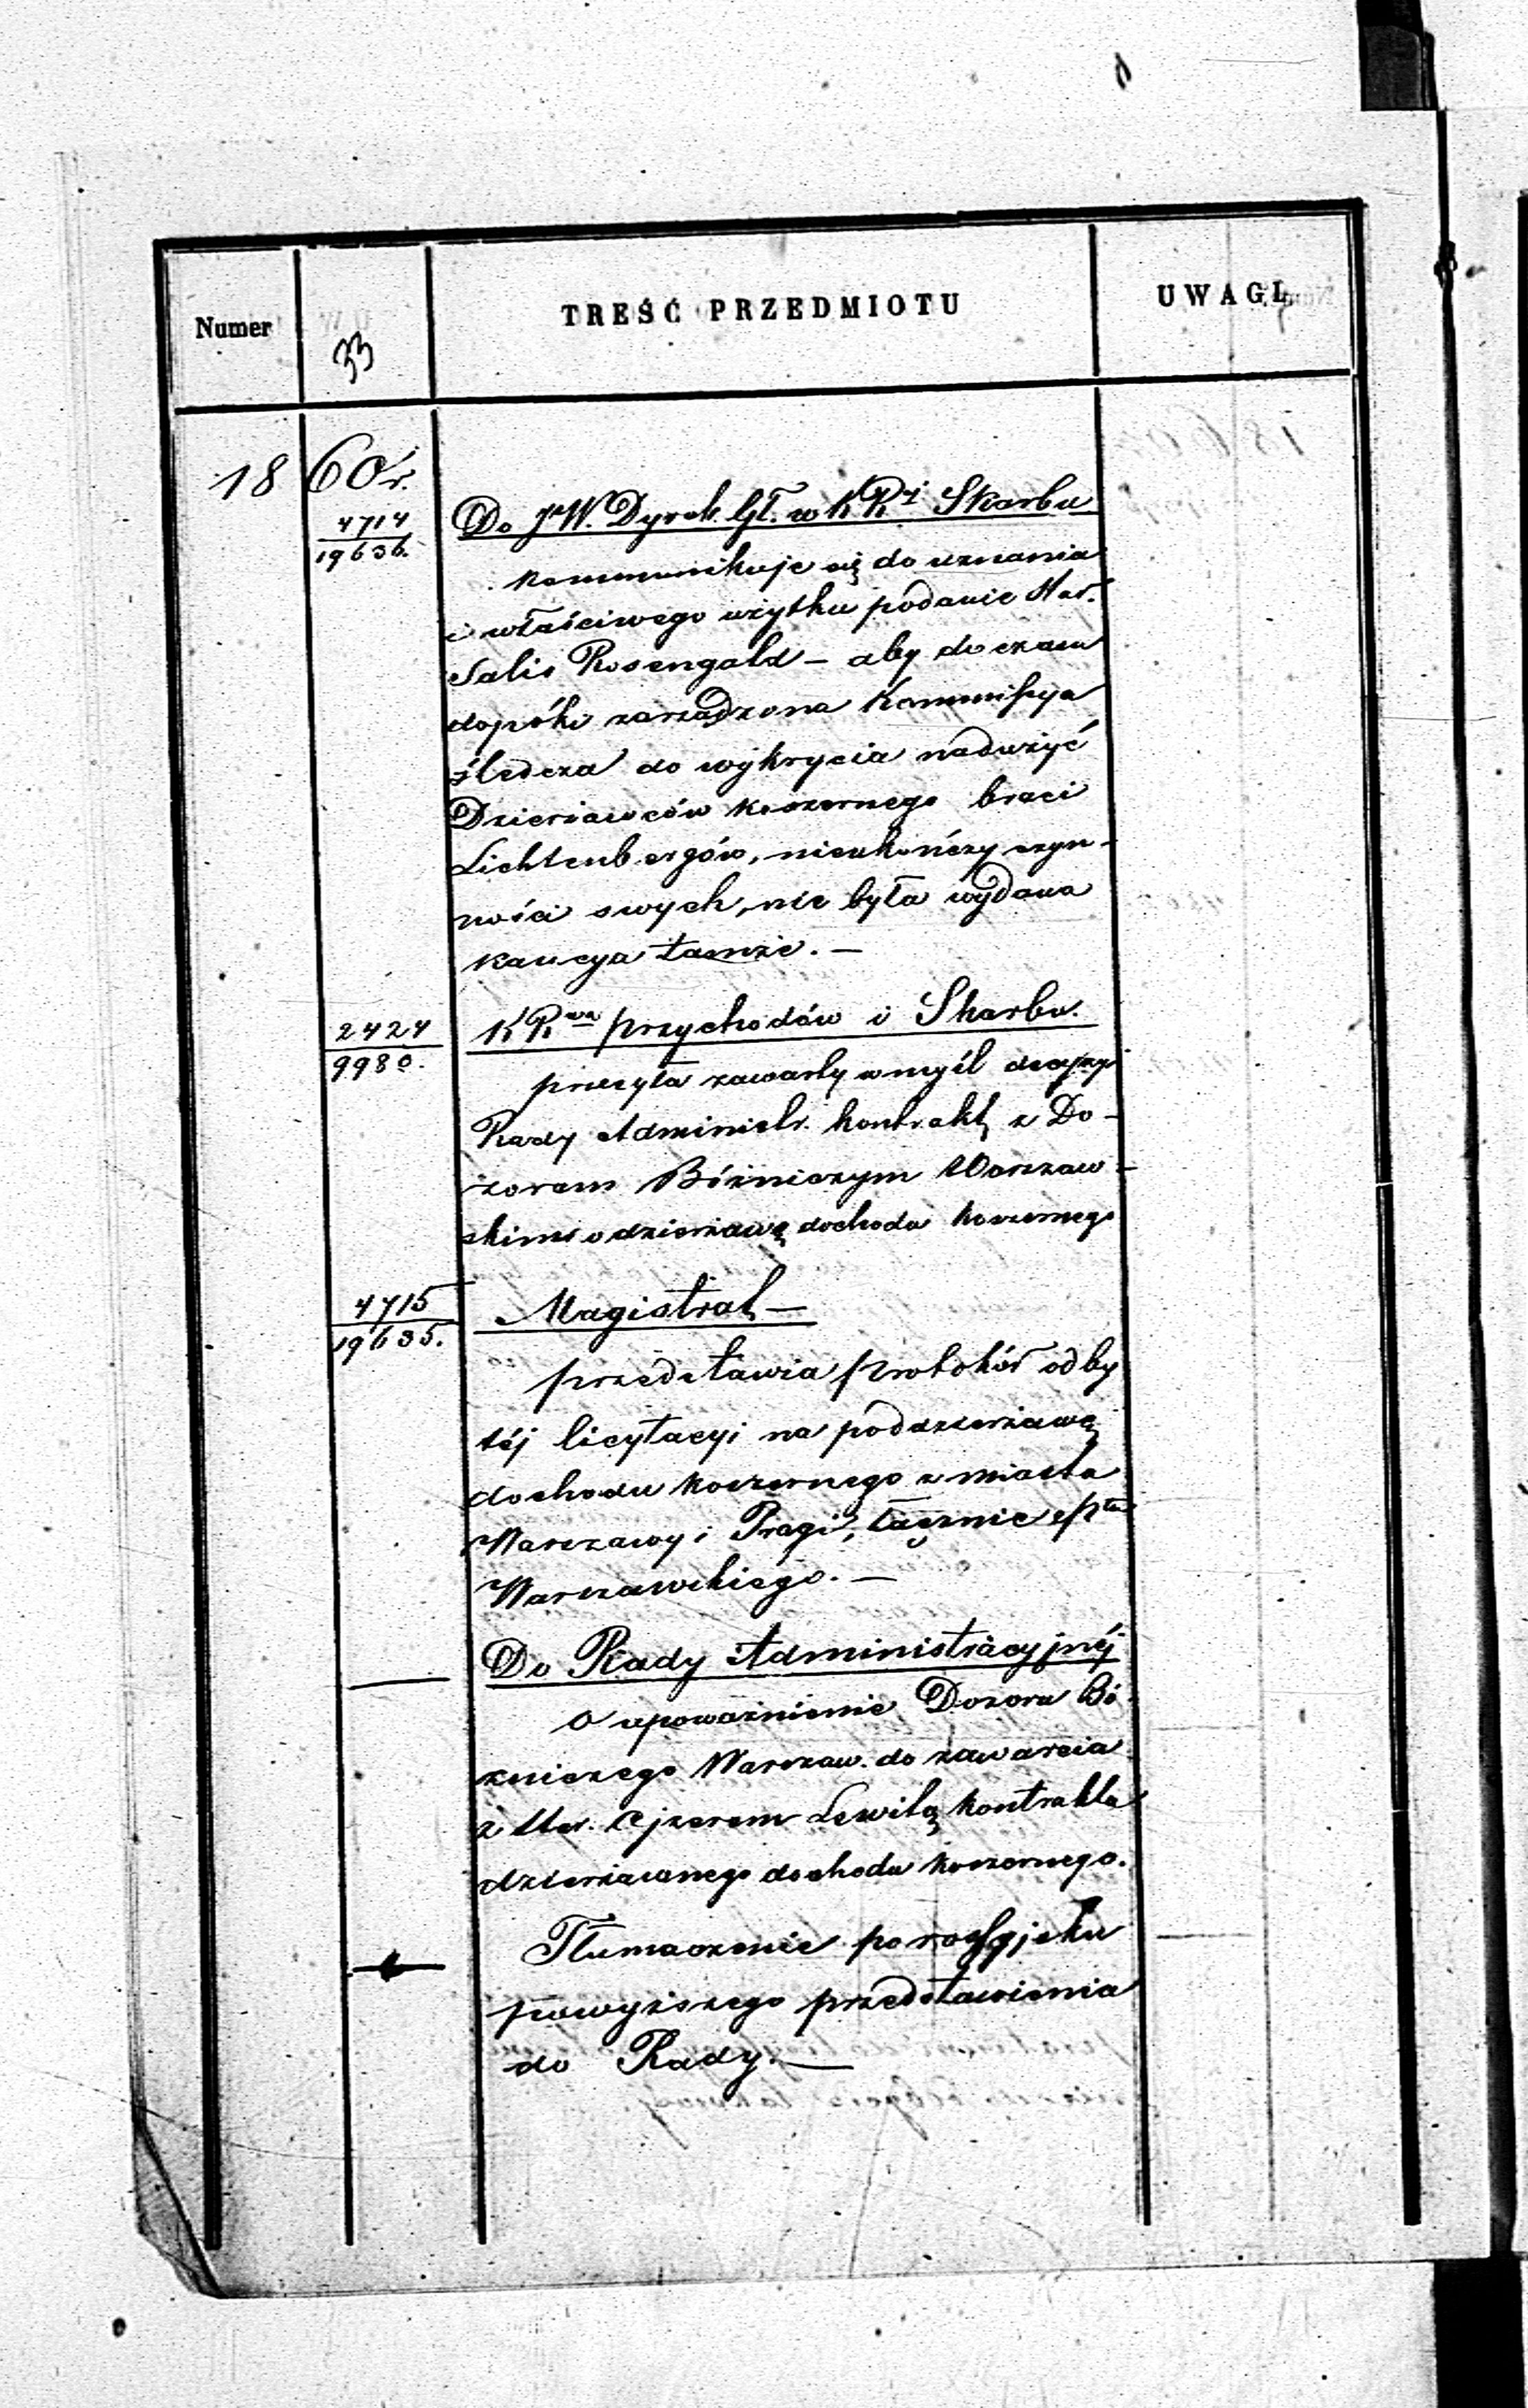 Numer
33
TREŚĆ PRZEDMIOTU
UWAGI
1860 r.
4714
19636.
Do JW. Dyrek. Gł. w K R i Skarbu
kommunikuje się do uznania
i właściwego użytku podanie Star.
Salis Rosengald – aby do czasu
dopóki zarządzona Kommissya
śledcza do wykrycia nadużyć
Dzierżawców koszernego braci
Lichtenbergów, nieukończy czyn-
ności swych, nie była wydana
kaucya tamże. —
2424
9980.
K R wa przychodów i Skarbu.
przesyła zawarty w myśl decyzyi
Rady Administr. kontrakt z Do-
zorem Bóżniczym Warszaw-
skim o dzierżawę dochodu koszernego
4715
19635.
Magistrat —
przedstawia protokół odby
téj licytacyi na poddzierżawę
dochodu koszernego z miasta
Warszawy i Pragi, łącznie
Warszawskiego. —
Do Rady Administracyjnéj
O upoważnienie Dozoru Bó
żniczego Warszaw. do zawarcia
z Star. Ajzerem Lewitą kontraktu
dzierżawnego dochodu koszernego.
Tłumaczenie po rossyjsku
powyższego przedstawienia
do Rady. —